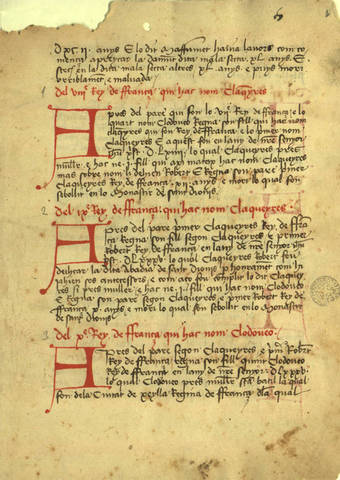 anys. E lo dit maffumet havia lavors com co
menca apreycar la damunt dita mala secta. xl. anys. E
stech en la dita mala secta altres. xl. anys. e puys mori
e malvada
Del viij Rey de ffranca qui hac nom Claqueyres
Apres del pare qui fon lo vij Rey de ffranca e lo
quart nom Clodoveo Regna son fill qui hac nom
claqueyres qui fon Rey de ffranca e lo primer nom
Claqueyres E aquest fon en lany de nre senyor
lo qual Claqueyres pres
muller e hac ne j. fill qui apres matex hac nom Claqueyres
mas sobre nom li deyen Robert E Regna son pare primer
Claqueyres Rey de ffranca anys e mori lo qual fon
sebollit en lo Monastir de sant dionis
2 Del ix Rey de ffranca qui hac nom Claqueyres
Apres del pare primer Claqueyres Rey de ffran
ca Regna son fill segon Claqueyres e primer
Robert Rey de ffranca en lany de nre senyor
lo qual Claqueyres Robert feu
edificar la dita Abadia de sant dionis
ses antecessors e com aco feu complir lo dit Claquey
res si pres muller e hac ne j. fill qui hac nom Clodoveo
E Regna son pare segon Claqueyres e primer Robert Rey de
ffranca anys e mori lo qual fon sebollit en lo Monastir
de sant dionis
3 Del x Rey de ffranca qui hac nom Clodoveo
Apres del pare segon Claqueyres e primer Robert
Rey de ffranca Regna son fill quint Clodoveo
Rey de ffranca en lany de nre senyor
lo qual Clodoveo pres muller la qual
fon dela Ciutat de Regina de ffranca dela qual